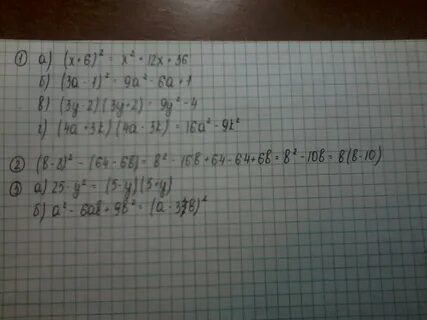 ① а) (x+6)² = x² + 12x + 36
б) (3a - 1)² = 9a² - 6a + 1
в) (3y-2)(3y+2) = 9y² - 4
г) (4a+3k)(4a - 3k) = 16a² - 9k²
② (в-8)² - (64 - 6в) = в² - 16в + 64 - 64 + 6в = в² - 10в = в(в-10)
③ а) 25 - y² = (5-y)(5+y)
б) a² - 6aв + 9в² = (a - 3в)²